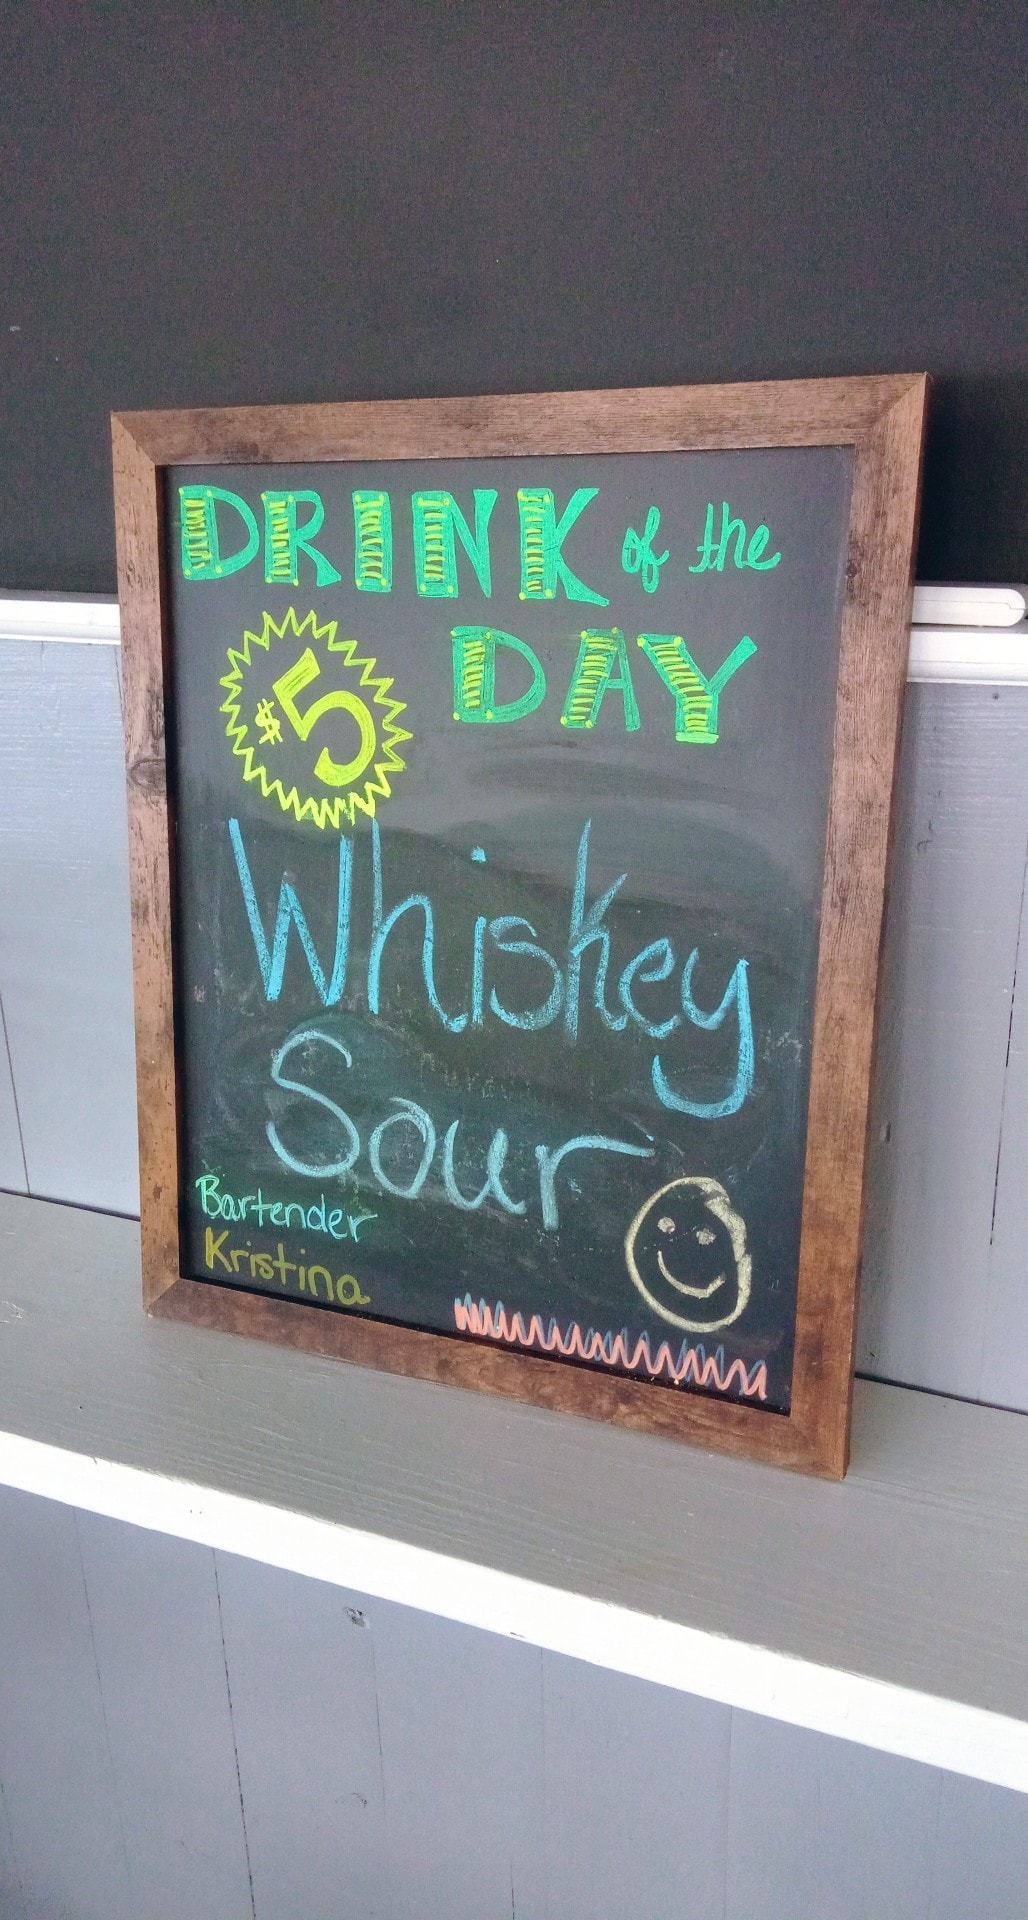 DRINK of the
DAY
$5
Whiskey
Sour
Bartender
Kristina